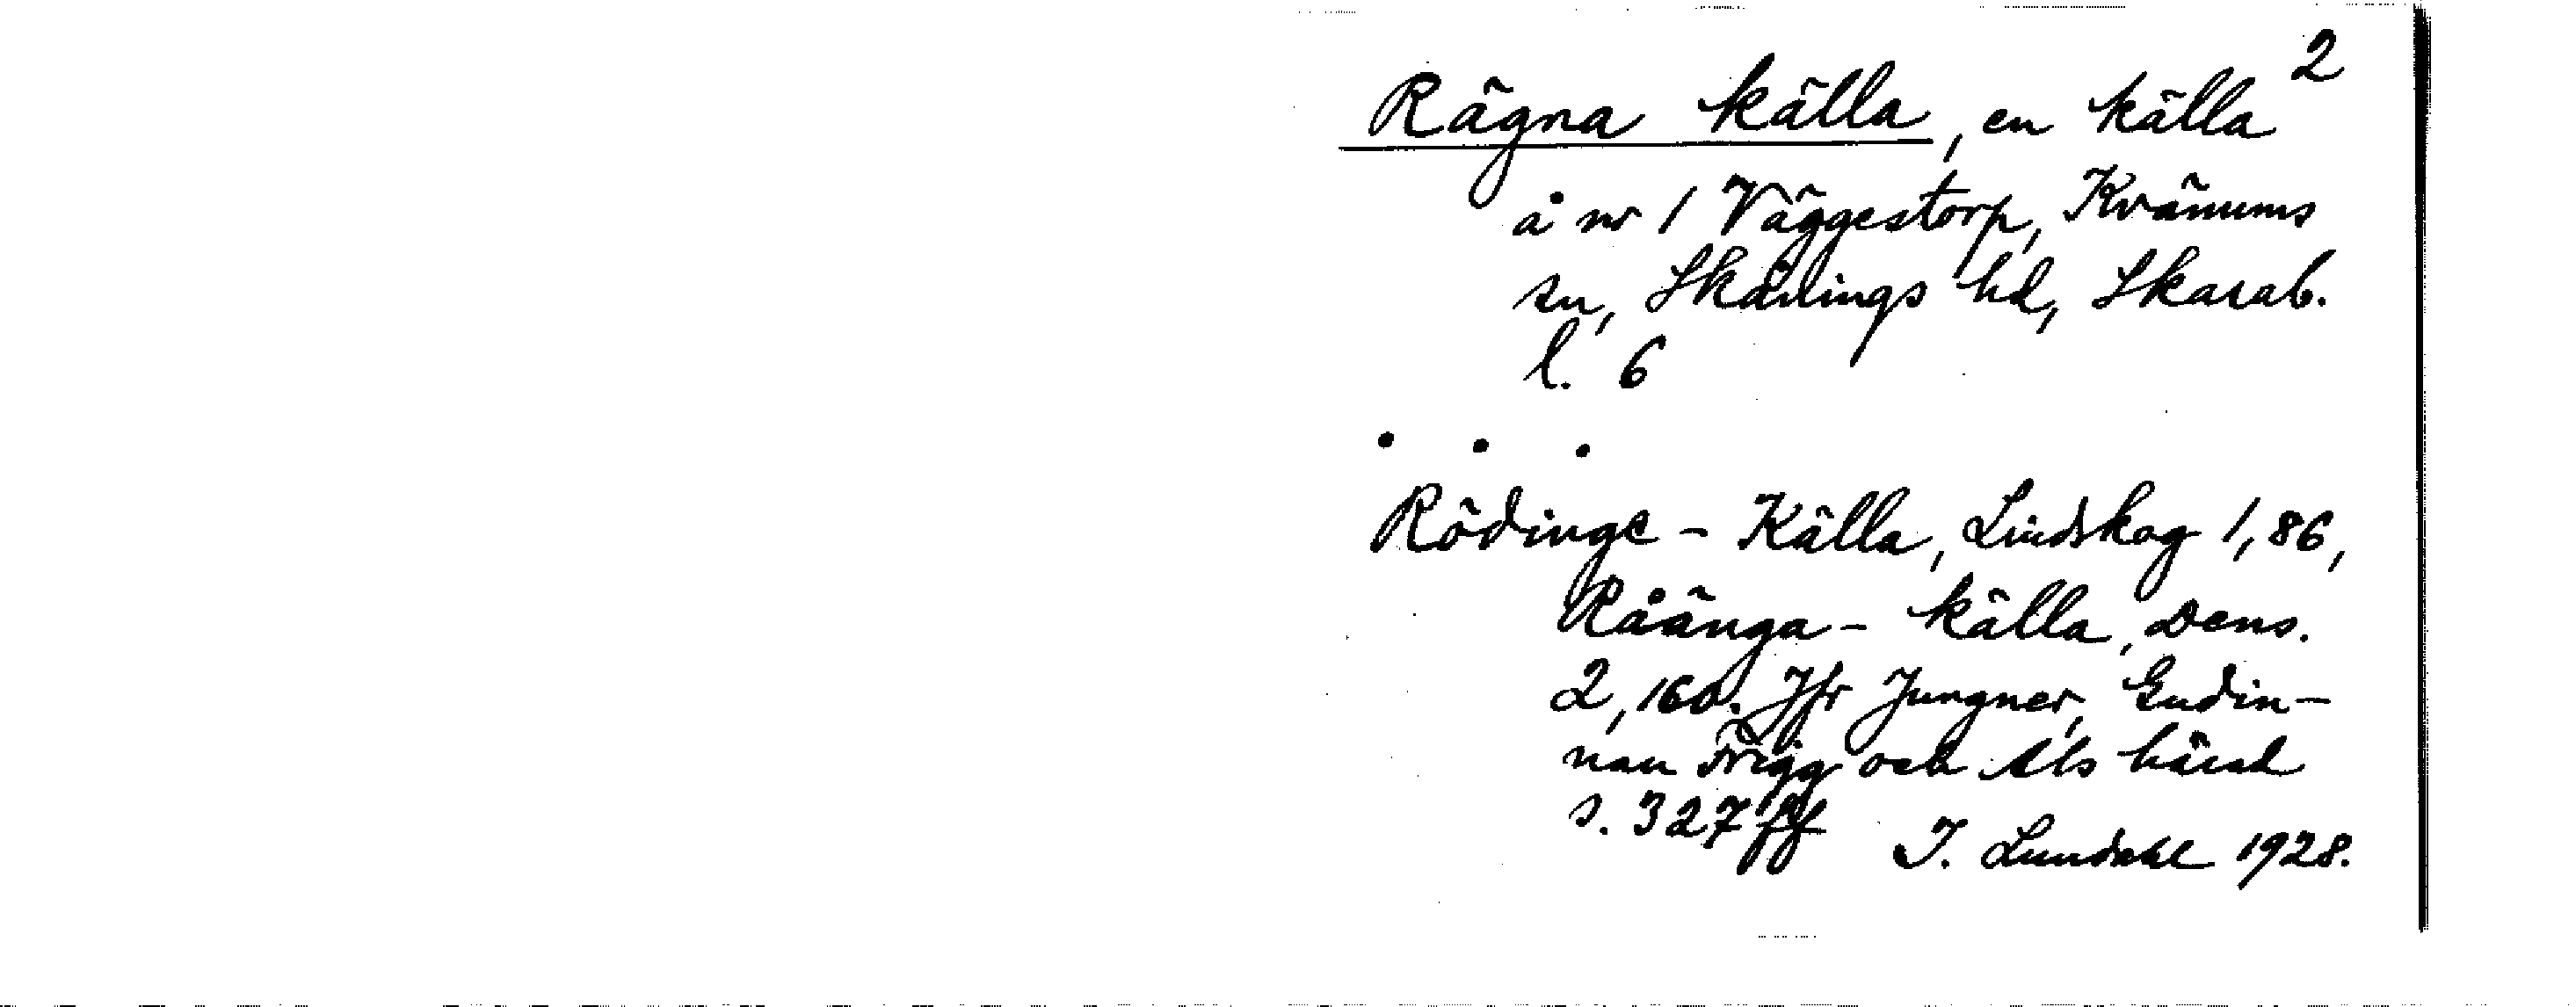 2
Rägna källa, en källa
å nr 1 Väggestorp, Kvänums
sn, Skånings hd, Skarab.
l. 6
. . .
Rödinge - Källa, Lindskog 1, 86,
Råänga - källa, Dens.
2, 160. Jfr Jungner, Gudin-
nan Frigg och Als härad
s. 327 ff I. Lundahl 1928.